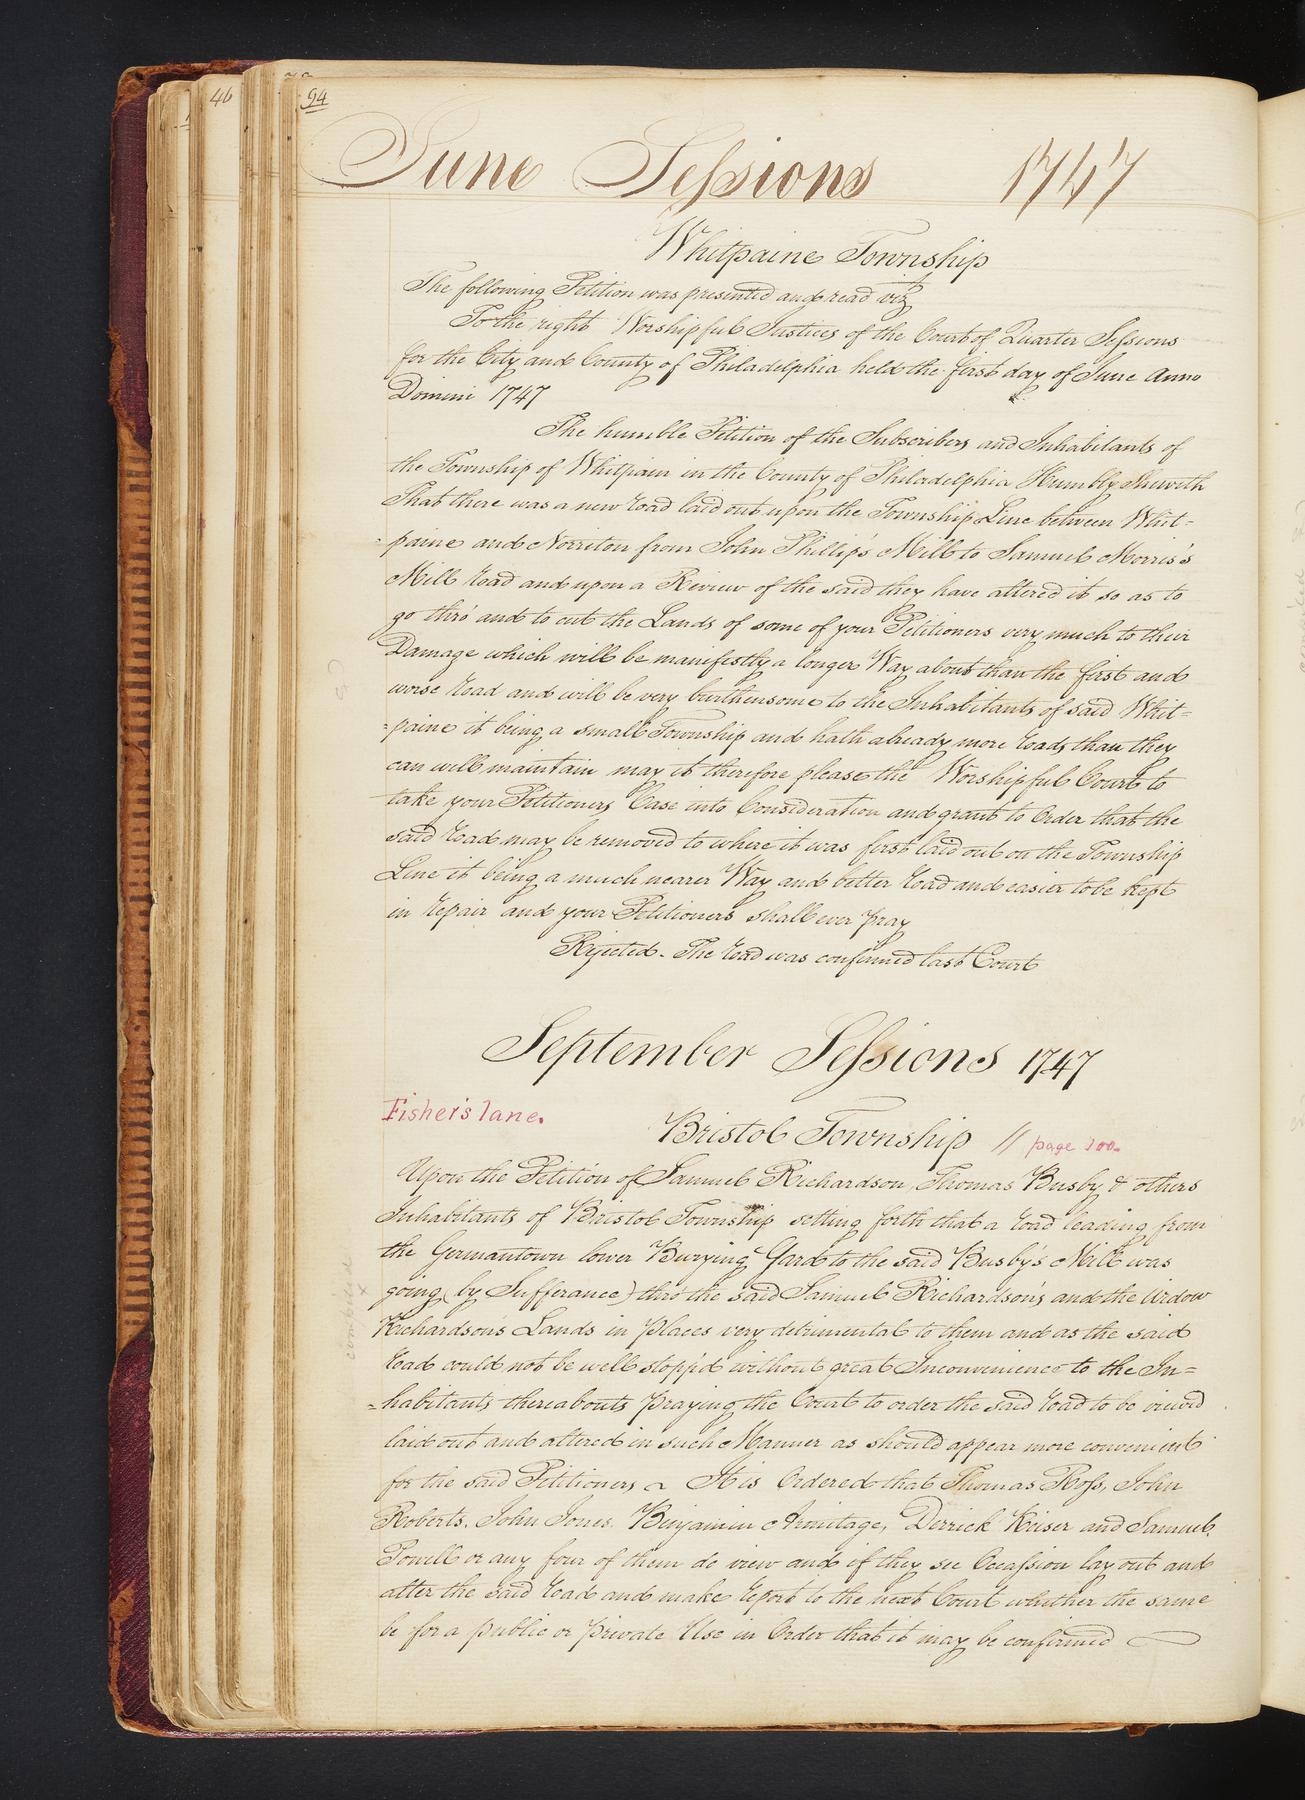 46
94
June Sessions 1747
Whitpaine Township
The following Petition was presented and read viz
To the right Worshipful Justices of the Court of Quarter Sessions
for the City and County of Philadelphia held the first day of June Anno
Domini 1747
The humble Petition of the Subscribers and Inhabitants of
the Township of Whitpain in the County of Philadelphia Humbly Sheweth
That there was a new Road laid out upon the Township Line between Whit=
=paine and Norriton from John Phillip's Mill to Samuel Morris's
Mill Road and upon a Review of the said they have altered it so as to
go thro' and to cut the Lands of some of your Petitioners very much to their
Damage which will be manifestly a longer Way about than the first and
worse Road and will be very burthensome to the Inhabitants of said Whit=
=paine it being a small Township and hath already more Roads than they
can well maintain may it therefore please the Worshipful Court to
take your Petitioners Case into Consideration and grant to Order that the
said Road may be removed to where it was first laid out on the Township
Line it being a much nearer Way and better Road and easier to be kept
in Repair and your Petitioners shall ever pray
Rejected. The Road was confirmed last Court
September Sessions 1747
Fisher's lane.
Bristol Township // page 100.
Upon the Petition of Samuel Richardson, Thomas Busby & others
Inhabitants of Bristol Township setting forth that a road leading from
the Germantown lower Burying Yard to the said Busby's Mill was
going (by Sufferance) thro' the said Samuel Richardson's and the Widow
Richardson's Lands in places very detrimental to them and as the said
Road could not be well stopp'd without great Inconvenience to the In=
=habitants thereabouts praying the Court to order the said Road to be viewed
laid out and altered in such Manner as should appear more convenient
for the said Petitioners ~ It is Ordered that Thomas Ross, John
Roberts, John Jones, Benjamin Armitage, Derrick Keiser and Samuel
Powell or any four of them do view and if they see Occassion lay out and
alter the said Road and make Report to the next Court whether the same
be for a public or private Use in Order that it may be confirmed